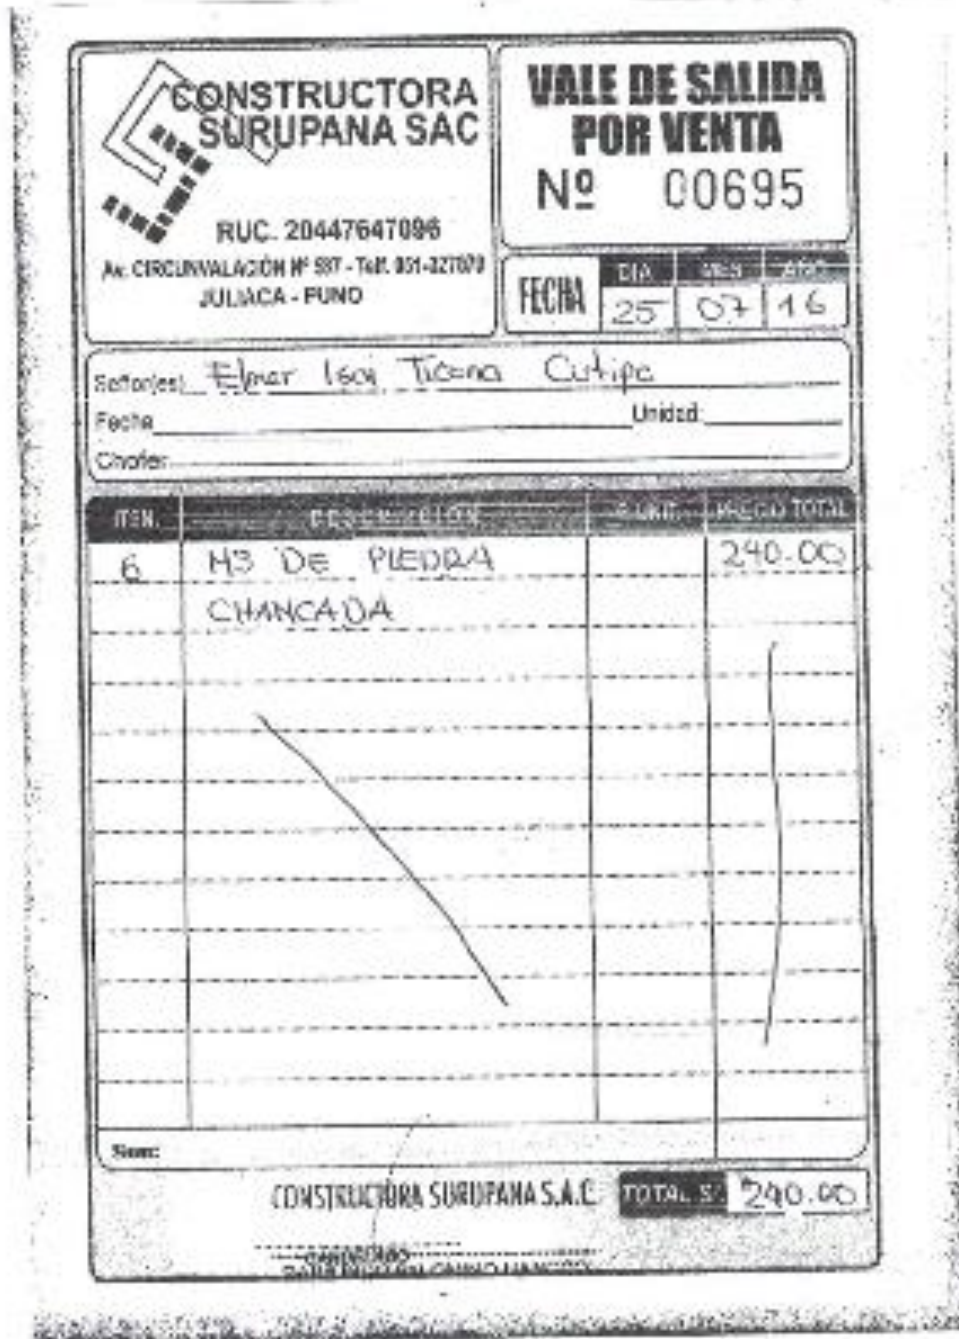 CONSTRUCTORA
SURUPANA SAC
RUC. 20447647096
Av. CIRCUNVALACIÓN Nº 587 - Telf. 051-327870
JULIACA - PUNO
VALE DE SALIDA
POR VENTA
Nº 00695
FECHA DIA MES AÑO
25 07 16
Señor(es) Elmer Ticona Cutipa
Fecha Unidad:
Chofer:
ITEM. DESCRIPCION P. UNIT. PRECIO TOTAL
6 M3 DE PIEDRA 240.00
CHANCADA
Son:
CONSTRUCTORA SURUPANA S.A.C. TOTAL S/. 240.00